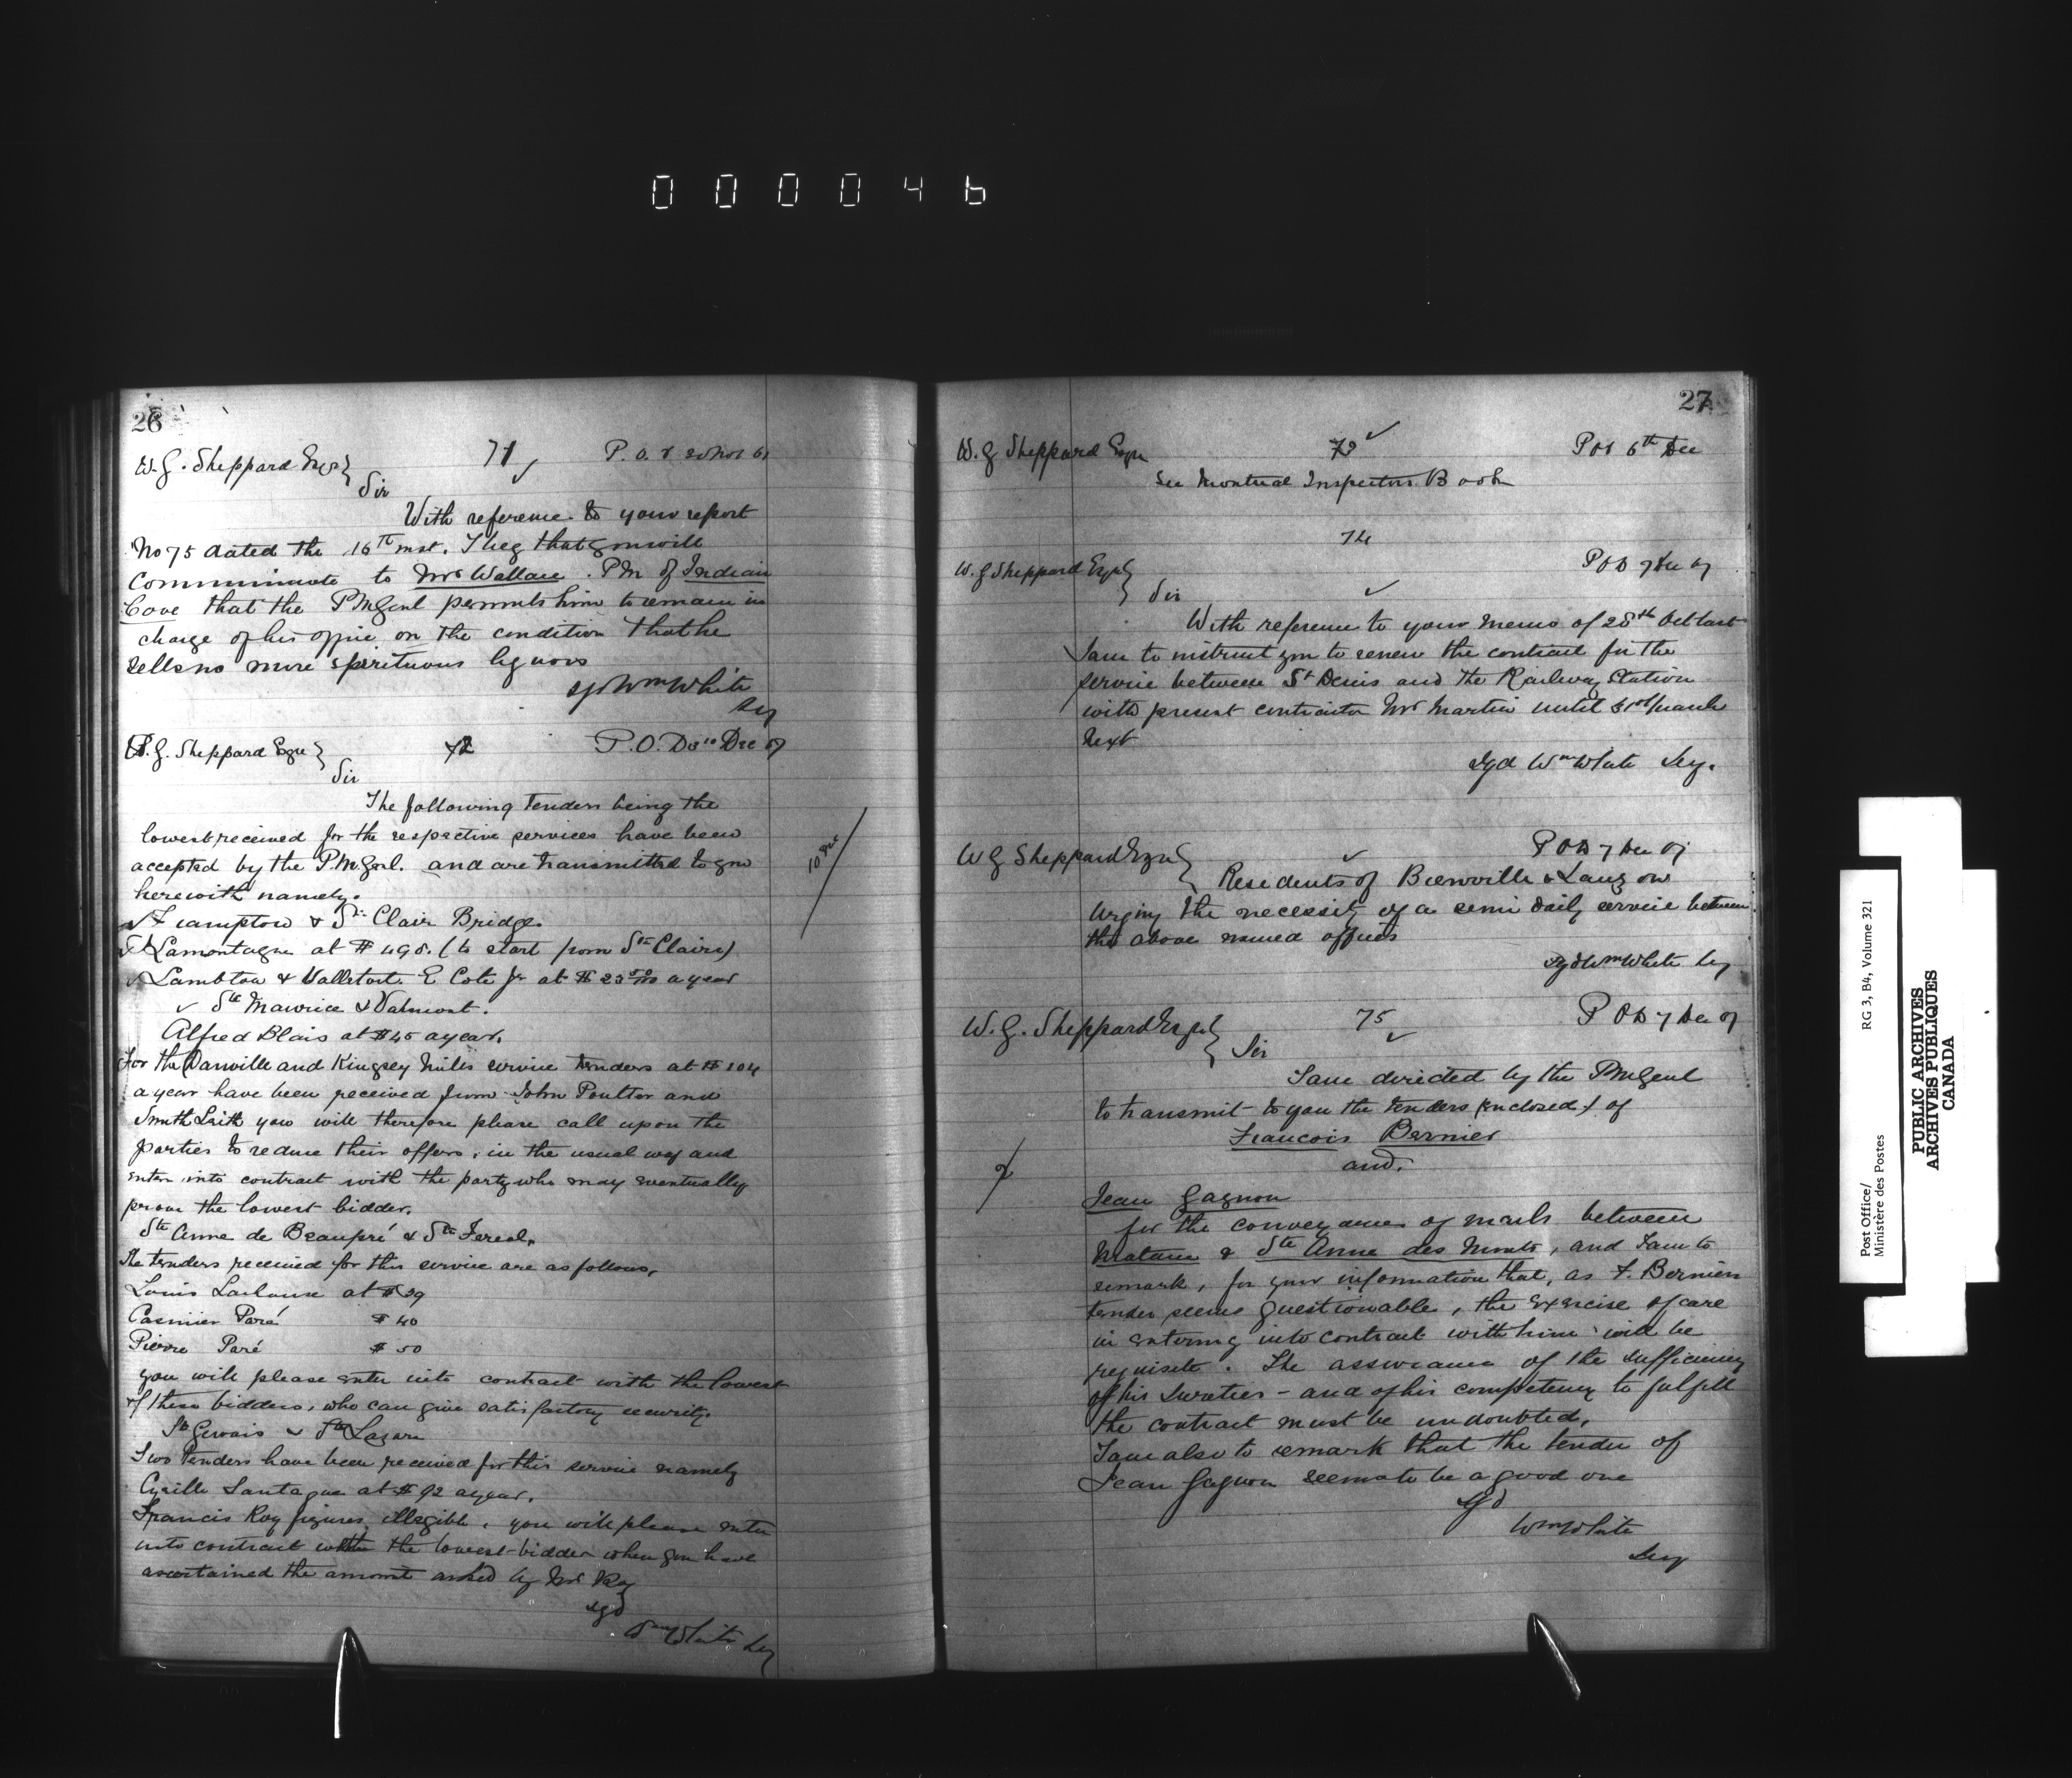 000046
26
W. G. Sheppard Esqr
71
P. O. D 20 Nov 67
Sir
With reference to your report
No 75 dated the 16th inst. I beg that you will
Communicate to Mr Wallace. PM of Indian
Cove that the PMGenl permits him to remain in
charge of his office on the condition that he
sells no more spirituous liquors
sgd Wm White
Secy
W. G. Sheppard Esqr
72
P.O. D Dec 67
Sir
The following Tenders being the
lowest received for the respective services have been
accepted by the P.M.Genl. and are transmitted to you
herewith namely.
Frampton & Ste Claire Bridge.
Lamontagne at $ 498. (to start from Ste Claire)
Lambton & Valletort. E Cote Jr at $ 23 50/100 a year
Ste Maurice & Valmont.
Alfred Blais at $45 a year.
For the Danville and Kingsey Mills service tenders at $ 104
a year have been received from John Poulter and
Smith Leith you will therefore please call upon the
parties to reduce their offers, in the usual way and
enter into contract with the party who may eventually
prove the lowest bidder.
Ste Anne de Beaupré & St Fereol.
The tenders received for this service are as follows.
Louis Lachance at $39
Casimier Paré $ 40
Pierre Paré $ 50
you will please enter into contract with the lowest
of these bidders, who can give satisfactory security.
St Gervais & St Lazare
Two Tenders have been received for this service namely
Cyrille Lantague at $ 92 a year.
Francis Roy figures illegible, you will please enter
into contract with the lowest bidder when you have
ascertained the amount asked by Mr Roy
sgd
Wm White Secy
10 Dec
27
W. G Sheppard Esqr
73
POD 6th Dec
See Montreal Inspectors Book
74
W. G Sheppard Esqr
POD 7 Dec 67
Sir
With reference to your memo of 28th Oct last
I am to instruct you to renew the contract for the
service between St Denis and the Railway Station
with present contractor Mr Martin until 31st March
next
Sgd Wm White Secy.
W G Sheppard Esqr
POD 7 Dec 67
Residents of Bienville & Lauzon
Urging the necessity of a semi daily service between
the above named offices
Sgd Wm White Secy
W. G. Sheppard Esqr
75
POD 7 Dec 67
Sir
I am directed by the PMGenl
to transmit to you the tenders (enclosed) of
Francois Bernier
and.
Jean Gagnon
for the conveyance of mails between
Matane & Ste Anne des Monts, and I am to
remark, for your information that, as F. Berniers
tender seems questionable, the exercise of care
in entering into contract with him will be
requisite. The assurance of the sufficiency
of his sureties - and of his competency to fulfill
the contract must be undoubted.
I am also to remark that the tender of
Jean Gagnon seems to be a good one
Sgd
Wm White
Secy
Post Office/
Ministère des Postes
RG 3, B4, Volume 321
PUBLIC ARCHIVES
ARCHIVES PUBLIQUES
CANADA